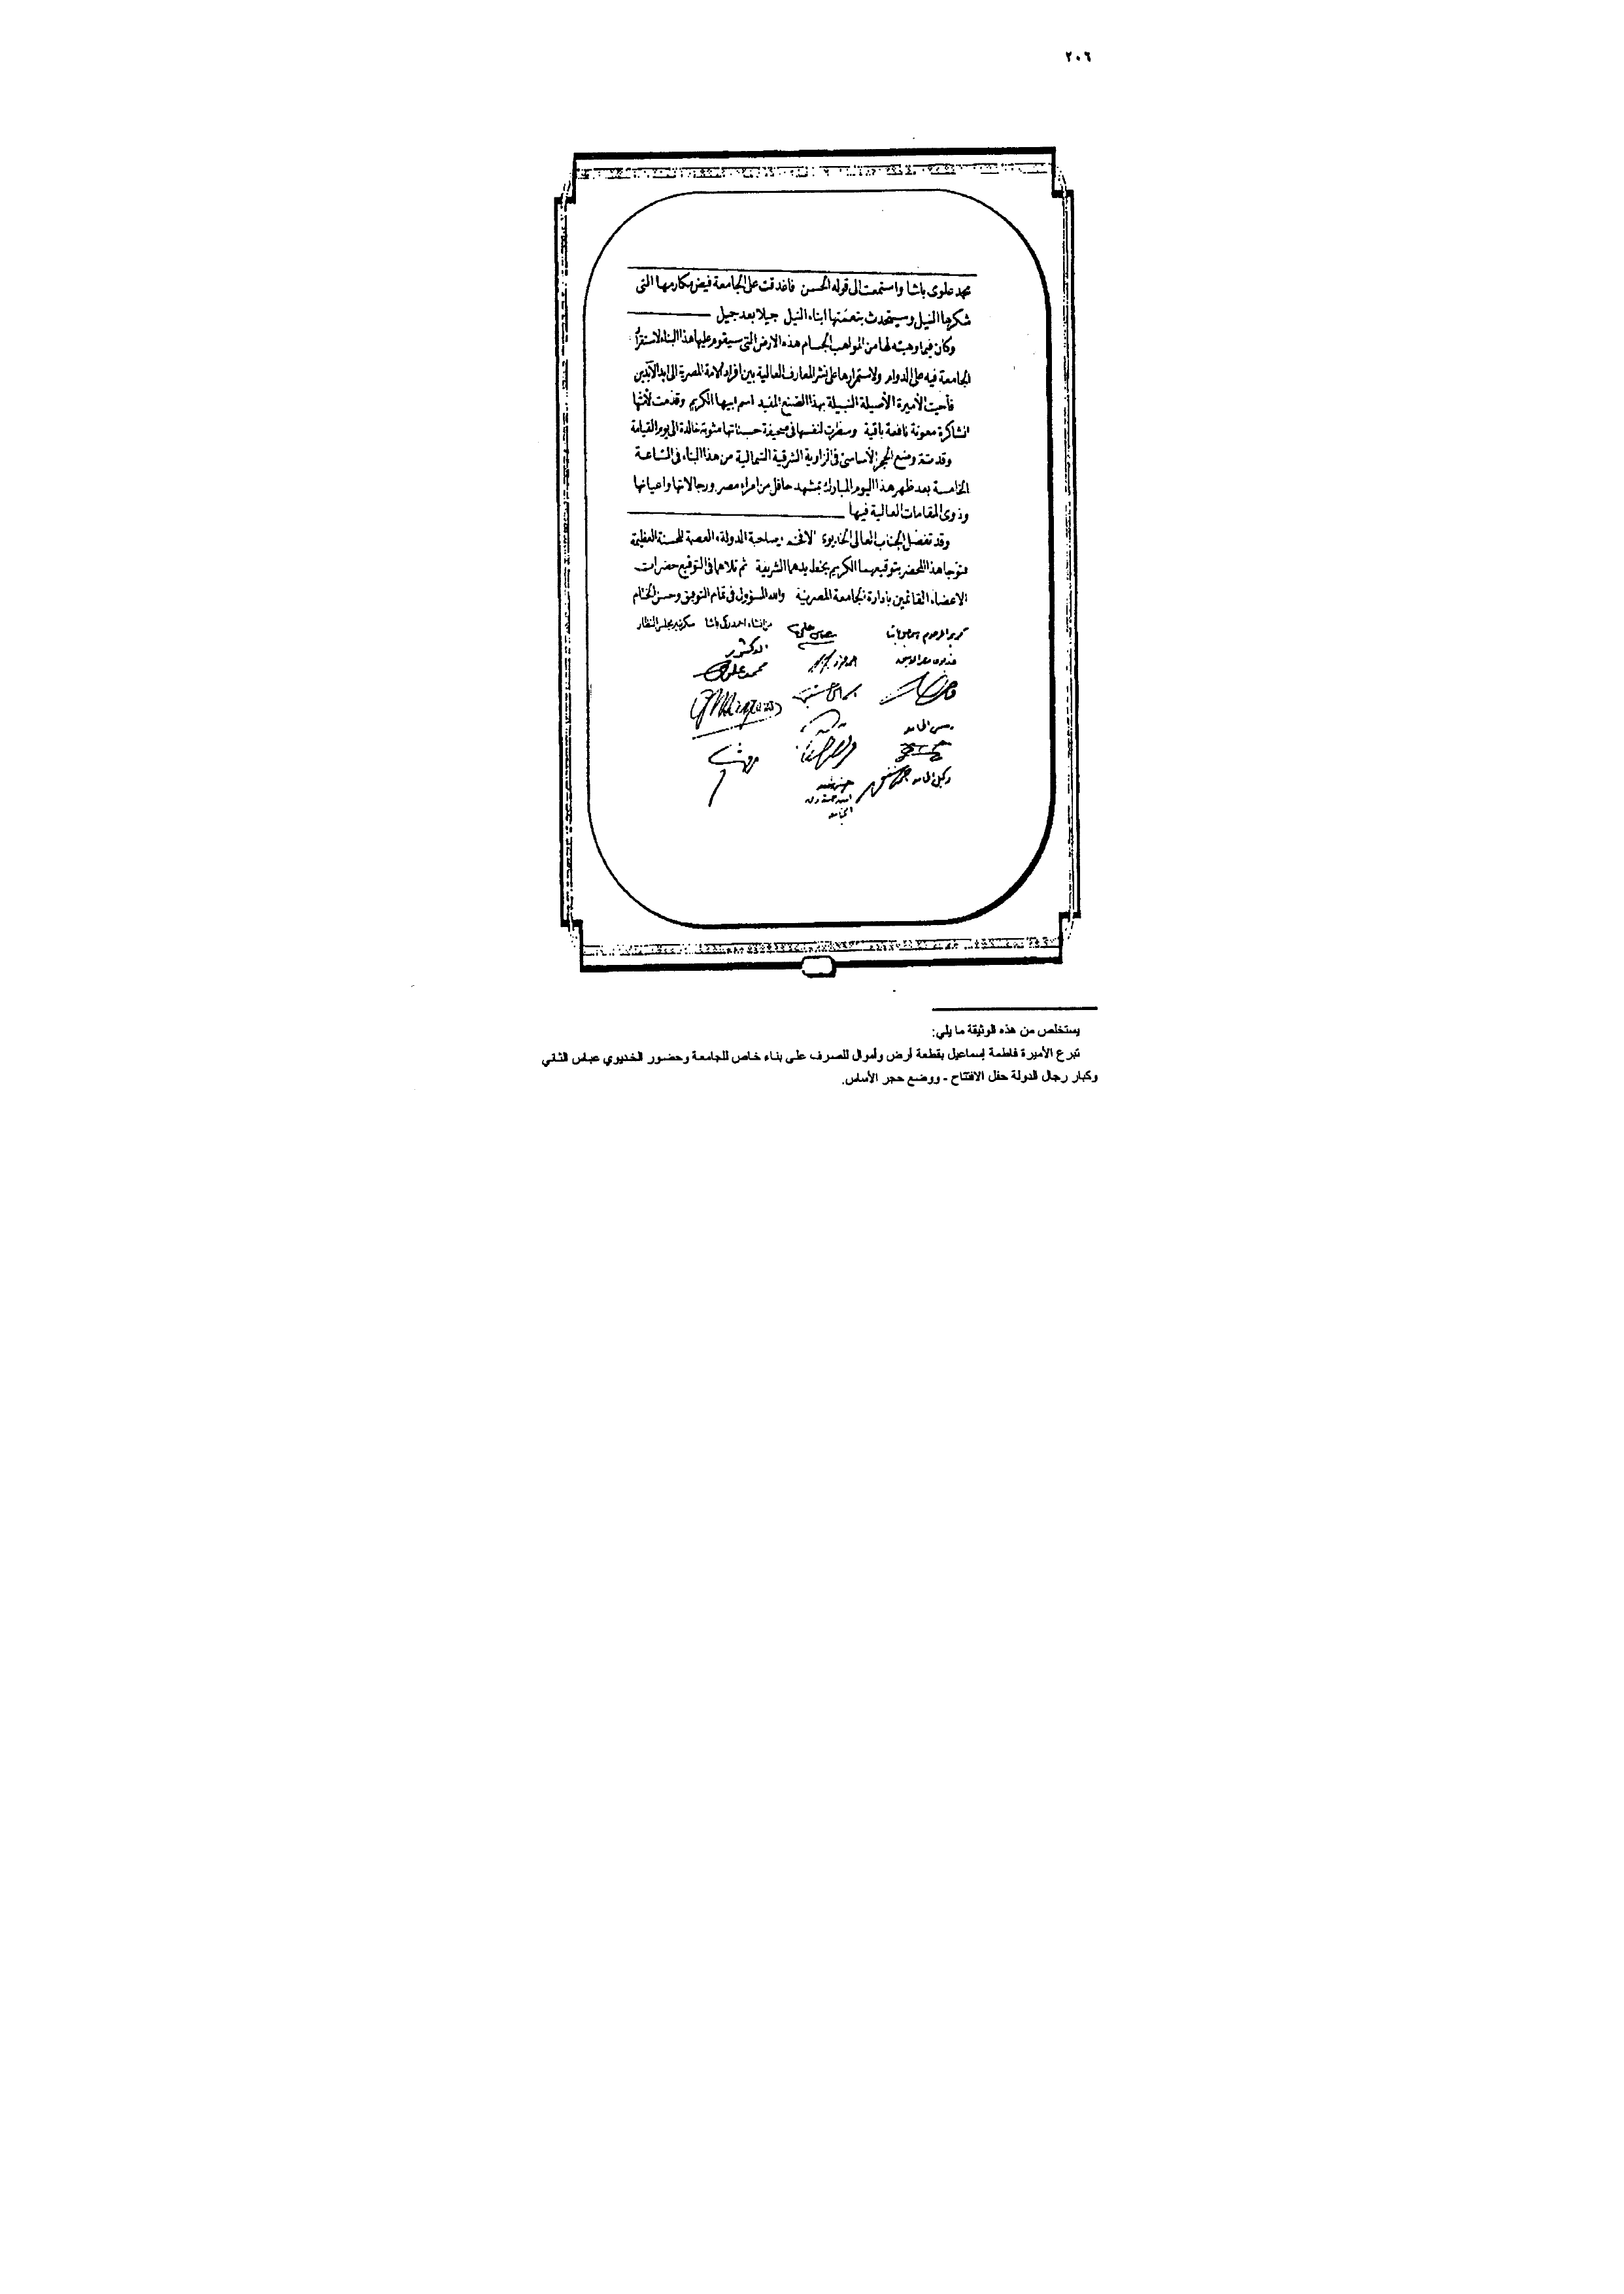 ٢٠٦
محمد علوى باشا واستمعت الى قوله الحسن فاغدقت على الجامعة فيض مكارمها التى
شكرها النيل وسيتحدث بنعمتها ابناء النيل جيلا بعد جيل
وكان فيما وهبته لها من المواهب الجسام هذه الارض التى سيقوم عليها هذا البناء لاستقرار
الجامعة فيه على الدوام ولاستمرارها على نشر المعارف العالية بين افراد الامة المصرية الى ابد الآبدين
فأحيت الأميرة الأصيلة النبيلة بهذا الصنع المفيد اسم ابيها الكريم وقدمت لأمتها
الشاكرة معونة نافعة باقية وسطرت لنفسها فى صحيفة حسناتها مثوبة خالدة الى يوم القيامة
وقد تم وضع الحجر الأساسى فى الزاوية الشرقية الشمالية من هذا البناء فى الساعة
الخامسة بعد ظهر هذا اليوم المبارك بمشهد حافل من امراء مصر ورجالاتها واعيانها
وذوى المقامات العالية فيها
وقد تفضل الجناب العالى الخديوى الافخم وصاحبة الدولة والعصمة المحسنة العظيمة
فتوجا هذا المحضر بتوقيعهما الكريم بخط يدهما الشريفة ثم تلاهما فى التوقيع حضرات
الاعضاء القائمين بادارة الجامعة المصرية والله المسؤول فى تمام التوفيق وحسن الختام
من انشاء احمد زكى باشا سكرتير مجلس النظار
عباس حلمى
الدكتور
محمد علوى
وكيل الجامعة
يستخلص من هذه الوثيقة ما يلي:
تبرع الأميرة فاطمة إسماعيل بقطعة أرض وأموال للصرف على بناء خاص للجامعة وحضور الخديوي عباس الثاني
وكبار رجال الدولة حفل الافتتاح - ووضع حجر الأساس.